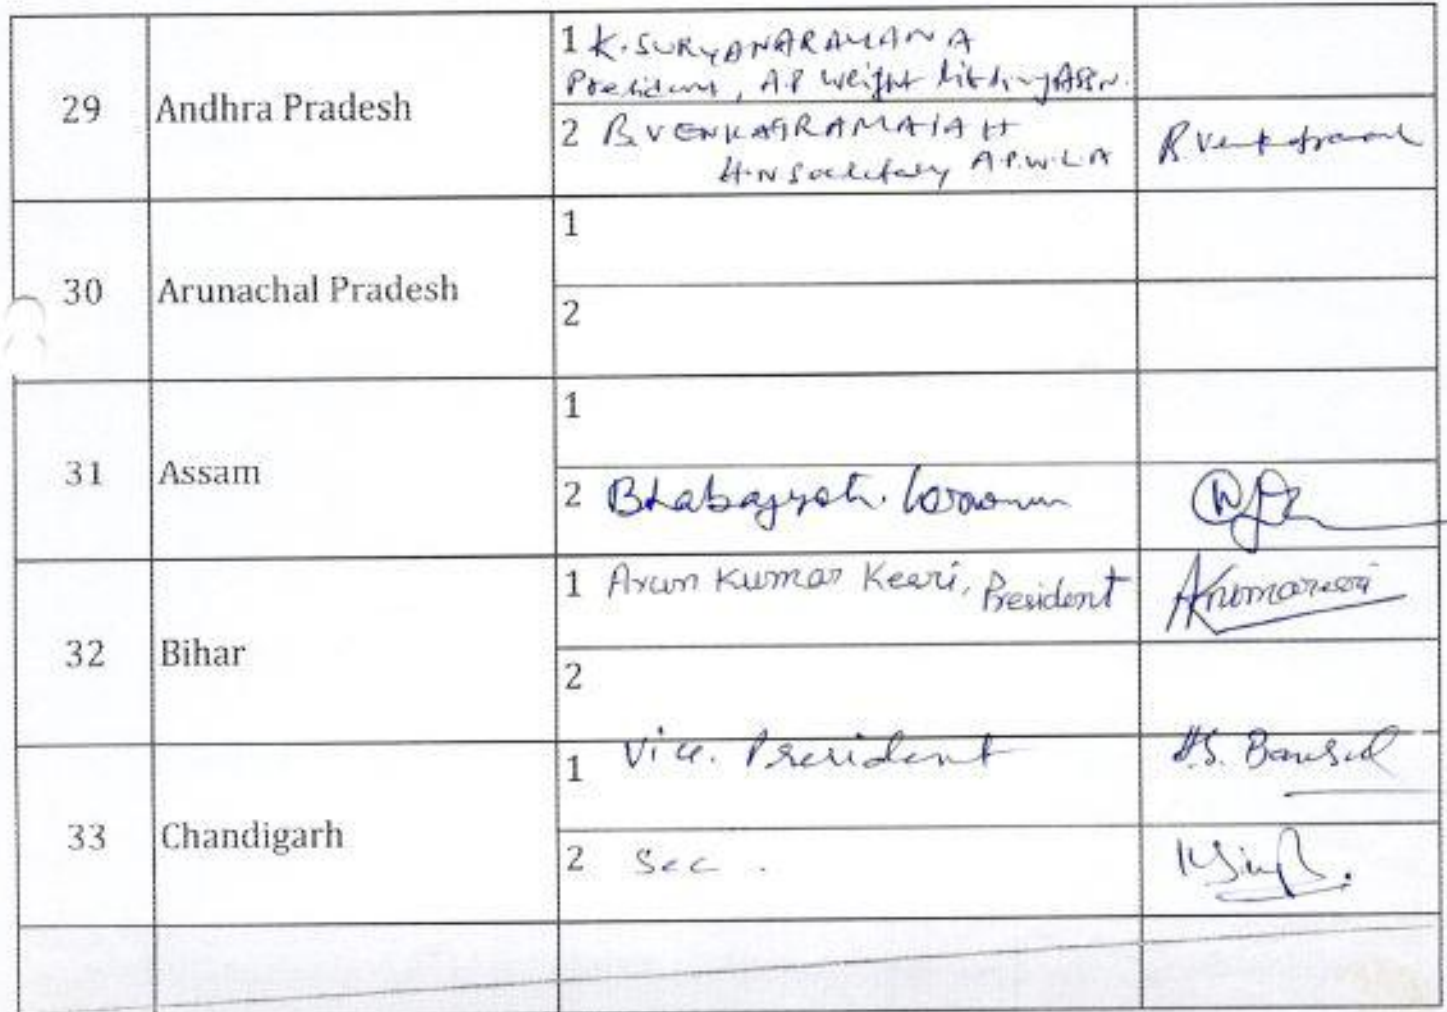 29 Andhra Pradesh
1 K. SURYANARAYANA
President, A.P Weight lifting Assn.
2 B. VENKATRAMAIAH
Hn Secretary A.P.W.L.A
30 Arunachal Pradesh
1
2
31 Assam
1
2 Bhabajyoti
32 Bihar
1 Arun Kumar Kesri, President
2
33 Chandigarh
1 Vice. President H.S. Bansal
2 Sec.